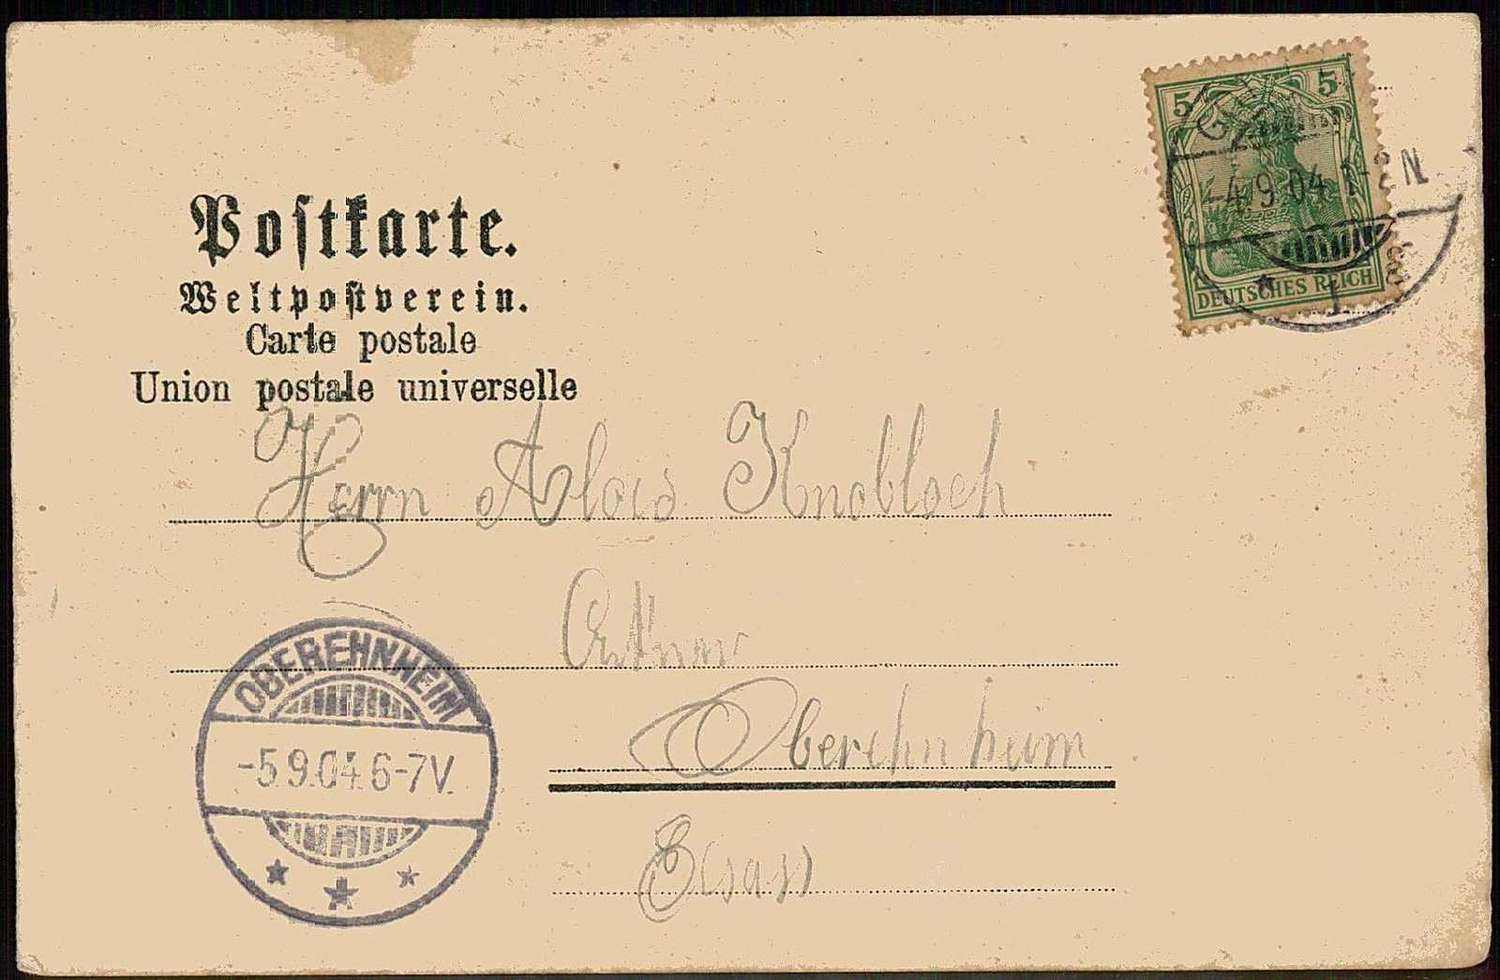 Postkarte.
Weltpostverein.
Carte postale
Union postale universelle
5 5
4.9.04. 1-2 N
DEUTSCHES REICH
Herrn Alois Knobloch
Oberehnheim
Elsass
OBEREHNHEIM
-5.9.04.6-7V.